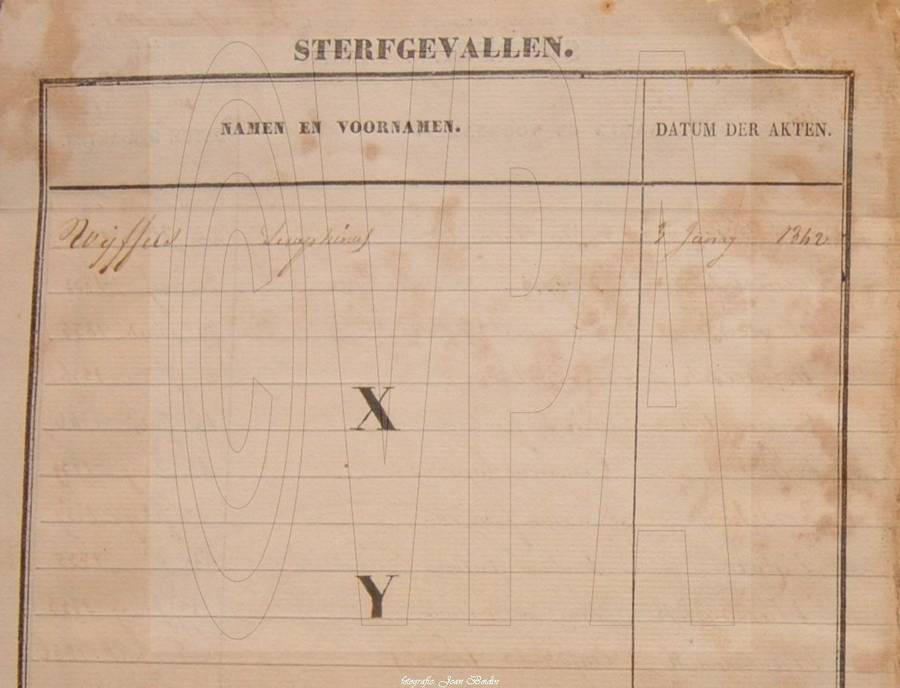 STERFGEVALLEN.
NAMEN EN VOORNAMEN. DATUM DER AKTEN.
Wijffels Seraphinus 3 Juny 1842
X
Y
CVPA
fotografie. Joan Beidin